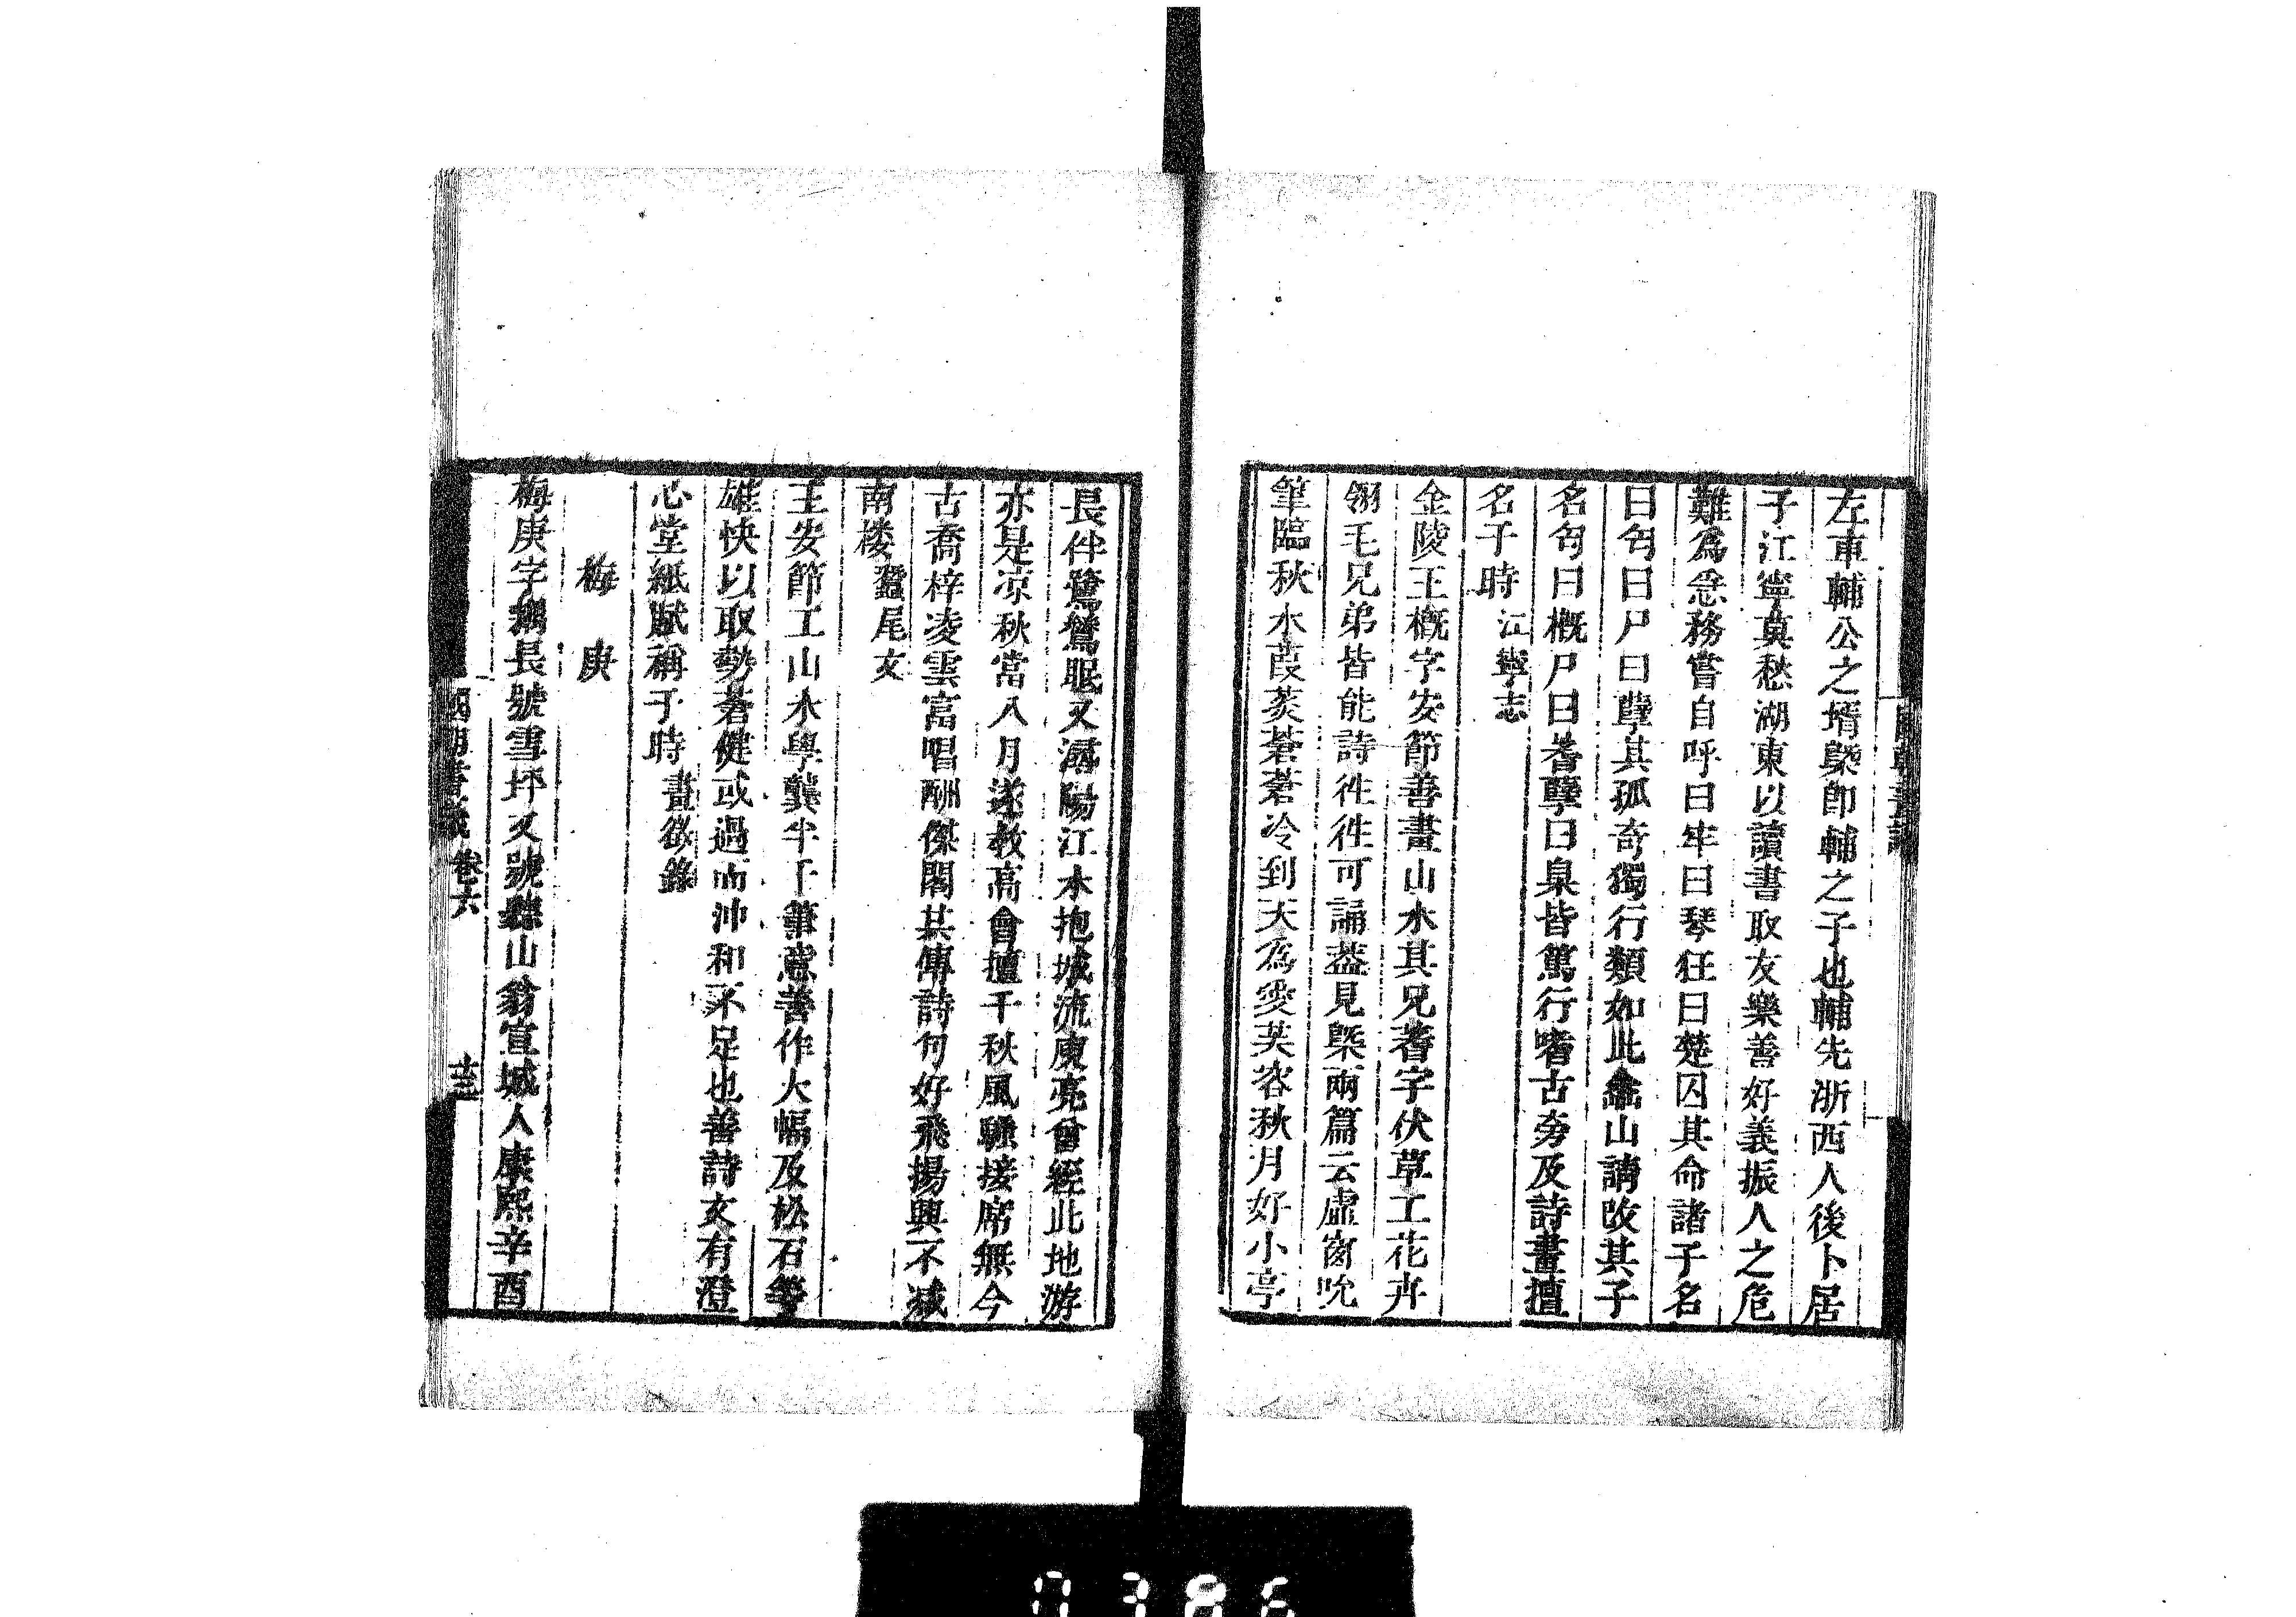 左車輔公之壻槩即輔之子也輔先浙西人後卜居
子江寧莫愁湖東以讀書取友樂善好義振人之危
難爲急務嘗自呼曰牢曰琴狂曰楚囚其命諸子名
曰匄曰尸曰孽其孤奇獨行類如此龕山請改其子
名匄曰概尸曰蓍孽曰臬皆篤行嗜古旁及詩畫擅
名于時 江寧志
金陵王概字安節善畫山水其兄蓍字伏草工花卉
翎毛兄弟皆能詩徃徃可誦葢見槩兩篇云虛窗吮
筆臨秋水葭菼蒼蒼冷到天爲愛芙容秋月好小亭
長伴鷺鶿眠又潯陽江水抱城流庾亮曾經此地游
亦是凉秋當八月遂教高會擅千秋風騷接席無今
古喬梓凌雲富唱酬傑閣其傳詩句好飛揚興不減
南楼 蠶尾文
王安節工山水學龔半千筆意善作大幅及松石等
雄快以取勢蒼健或過而沖和不足也善詩文有澄
心堂紙賦稱于時 畫徵錄
梅庚
梅庚字耦長號雪坪又號聽山翁宣城人康熙辛酉
國朝書識 卷六 十三